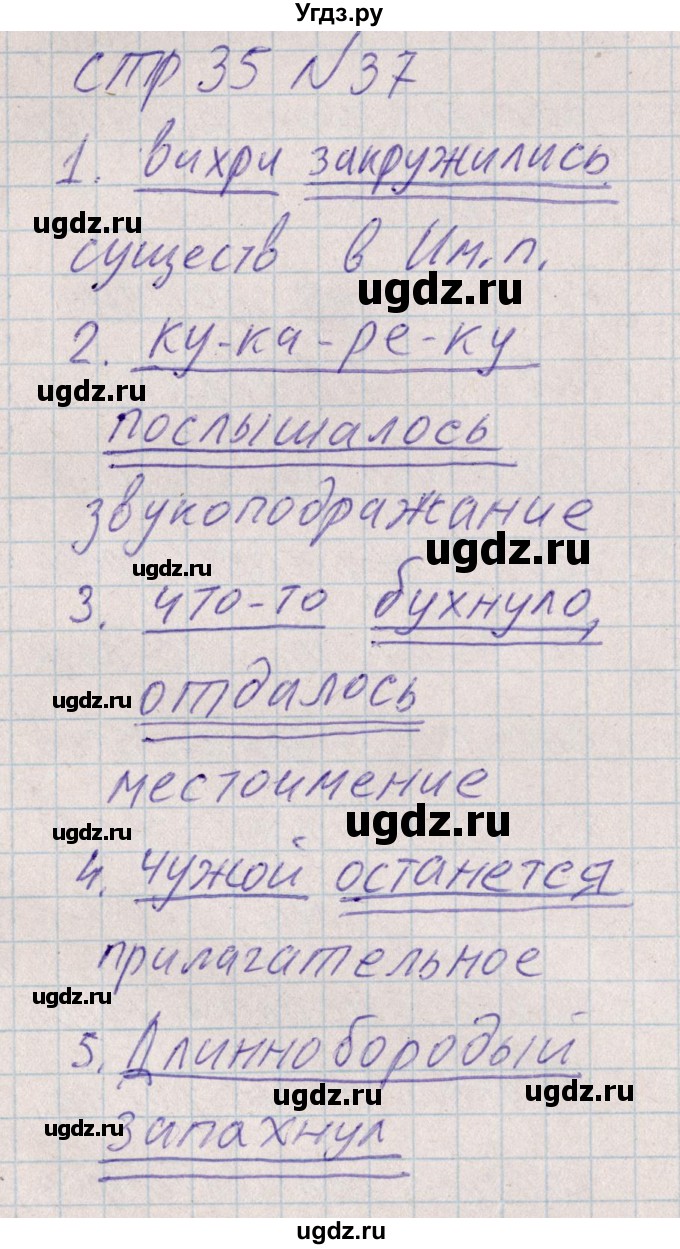 Угдз.ру
стр 35 №37
1. вихри закружились
ugdz.ru
существ в Им.п.
ugdz.ru
2. ку-ка-ре-ку
ugdz.ru
послышалось
звукоподражание
ugdz.ru
ugdz.ru
3. что-то бухнуло,
ugdz.ru
отдалось
местоимение
ugdz.ru
ugdz.ru
4. чужой останется
прилагательное
ugdz.ru
5. Длиннобородый
ugdz.ru ugdz.ru
запахнул
ugdz.ru
ugdz.ru